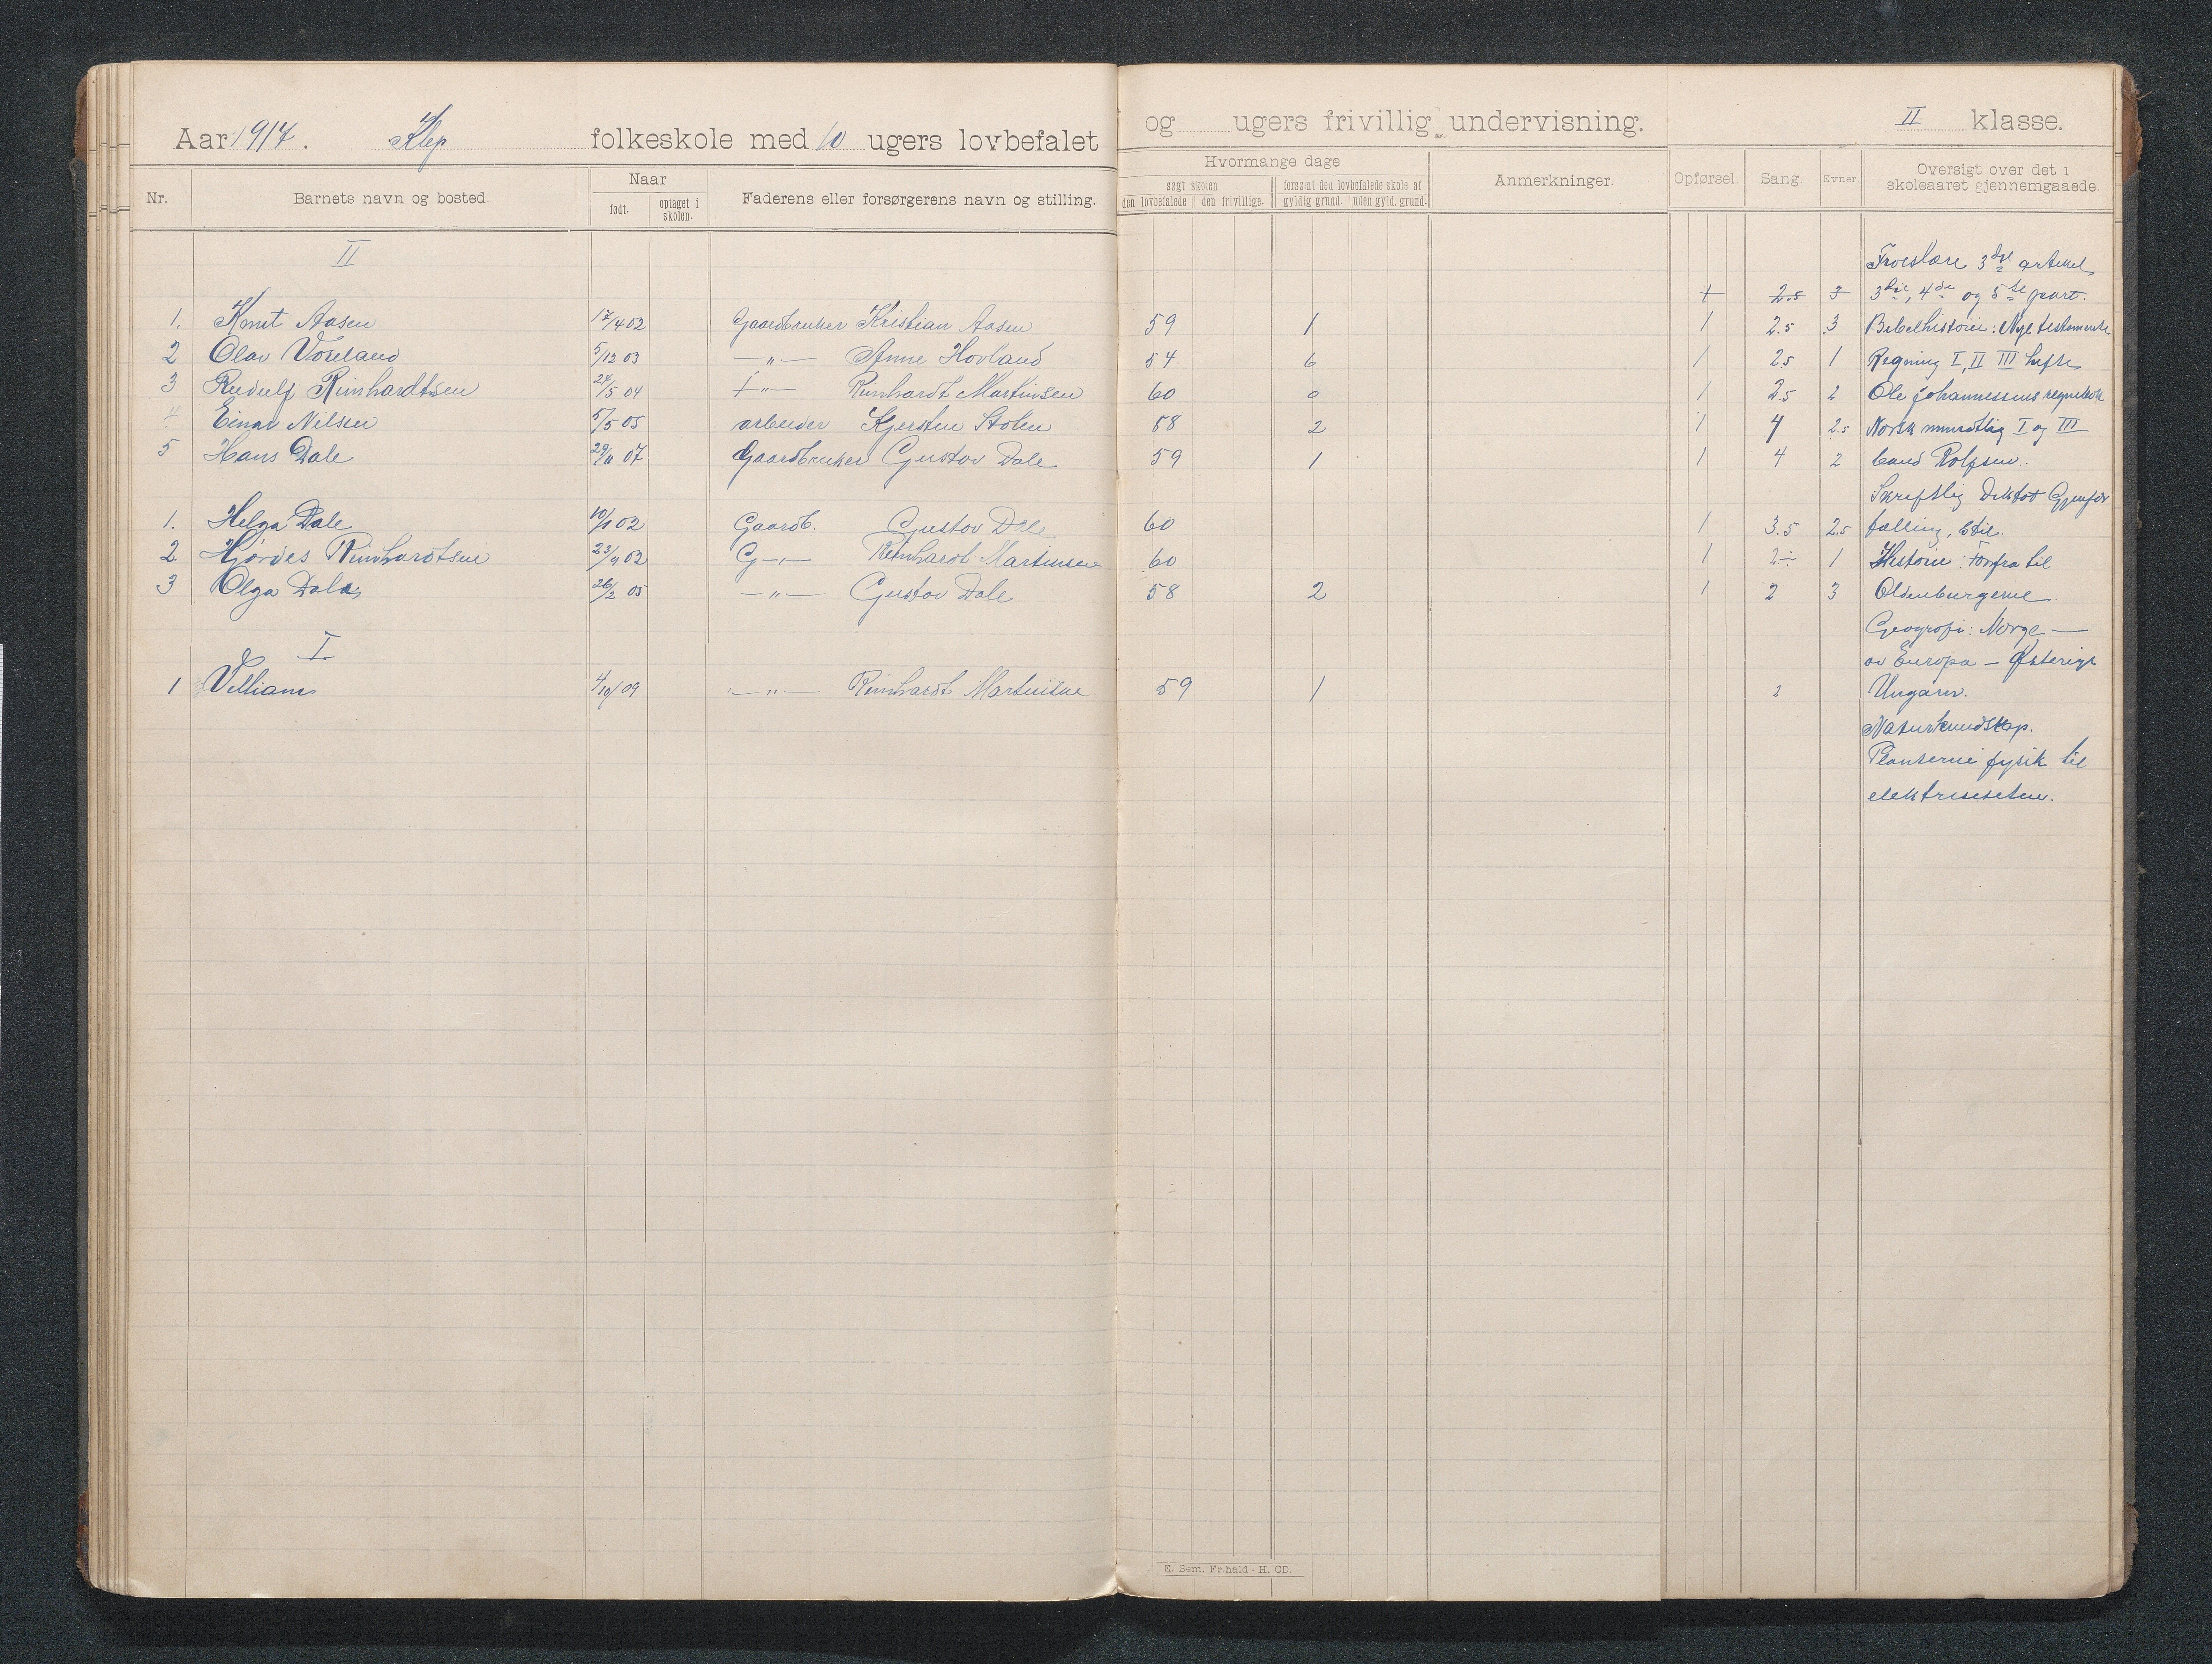 Aar 1917. Klep folkeskole med 10 ugers lovbefalet og ugers frivillig undervisning. II klasse.
Nr. Barnets navn og bosted. Naar født. optaget i skolen. Faderens eller forsørgerens navn og stilling. Hvormange dage søgt skolen den lovbefalede den frivillige. forsømt den lovbefalede skole af gyldig grund. uden gyld. grund. Anmerkninger. Opførsel. Sang. Evner. Oversigt over det i skoleaaret gjennemgaaede.
II
Troeslære 3dje artikel
1 2.5 3 3die, 4de og 5te part.
1. Knut Aasen 17/4 02 Gaardbruker Kristian Aasen 59 1 1 2.5 3 Bibelhistorie: Nye testamente
2 Olav Voreland 5/12 03 —"— Anne Hovland 54 6 1 2.5 1 Regning I, II III hefte
3 Rudulf Reinhardtsen 24/5 04 —"— Reinhardt Martinsen 60 0 1 2.5 2 Ole Johannessens regnebok
4 Einar Nilsen 5/5 05 arbeider Kjersten Stolen 58 2 1 4 2.5 Norsk mundtlig I og III
5 Hans Dale 29/11 07 Gaardbruker Gustav Dale 59 1 1 4 2 band Rolfsen.
Skriftlig Diktat Gjenfor
1. Helga Dale 10/1 02 Gaardb. Gustav Dale 60 1 3.5 2.5 tælling, Stil.
2 Hjördes Reinhardtsen 23/9 02 G—"— Reinhardt Martinsen 60 1 2÷ 1 Historie: Forfra til
3 Olga Dale 26/2 05 —"— Gustav Dale 58 2 1 2 3 Oldenburgerne
Geografi: Norge —
I av Europa — Østerige
1 Villiam 4/10 09 —"— Reinhardt Martinsen 59 1 2 Ungarn.
Naturkundskap.
Planterne fysik til
elektrisiteten.
E. Sem. Fr.hald - H. CD.